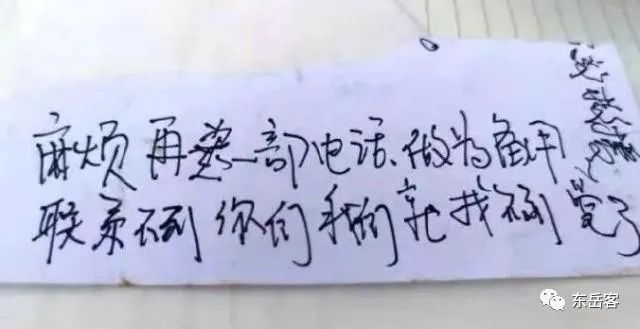 麻烦再装一部电话、做为备用
联系不到你们我们就找不到
东岳客